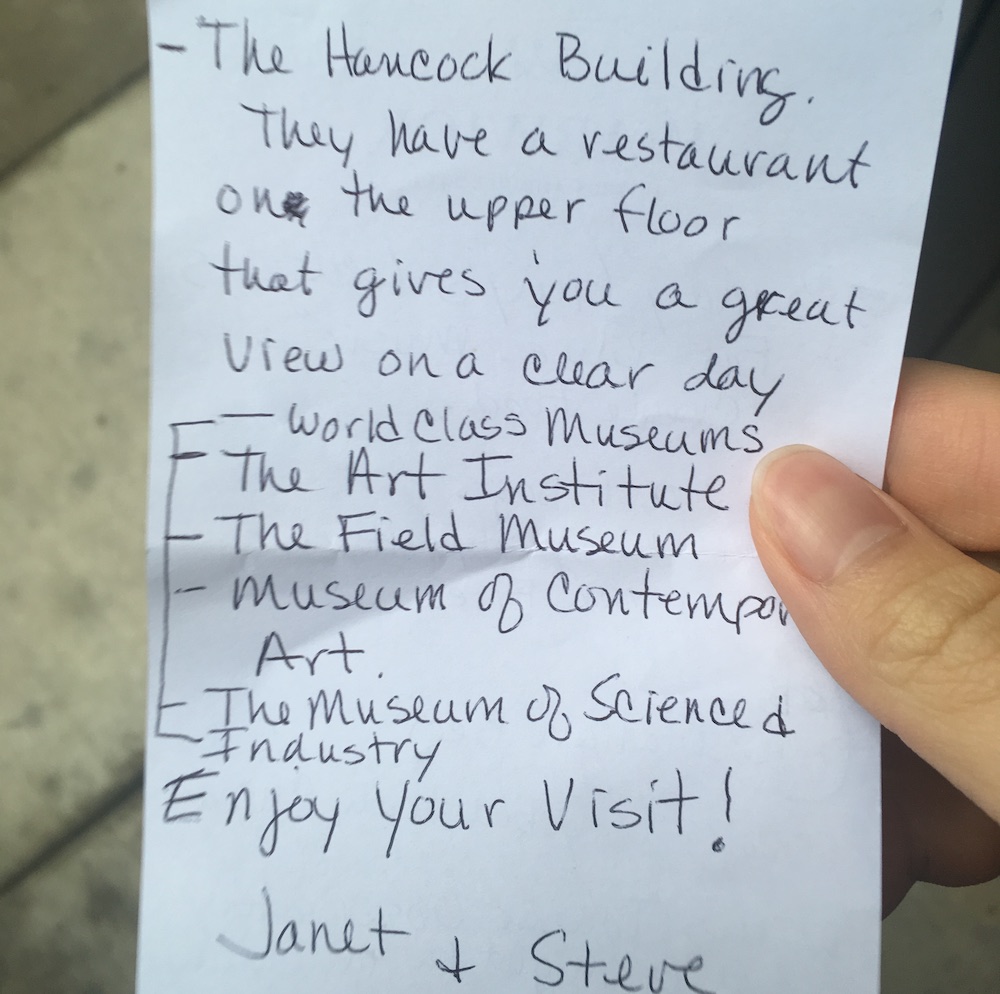 - The Hancock Building.
They have a restaurant
on the upper floor
that gives you a great
view on a clear day
— World Class Museums
- The Art Institute
- The Field Museum
- Museum of Contempor
Art.
- The Museum of Science &
Industry
Enjoy Your Visit!
Janet + Steve